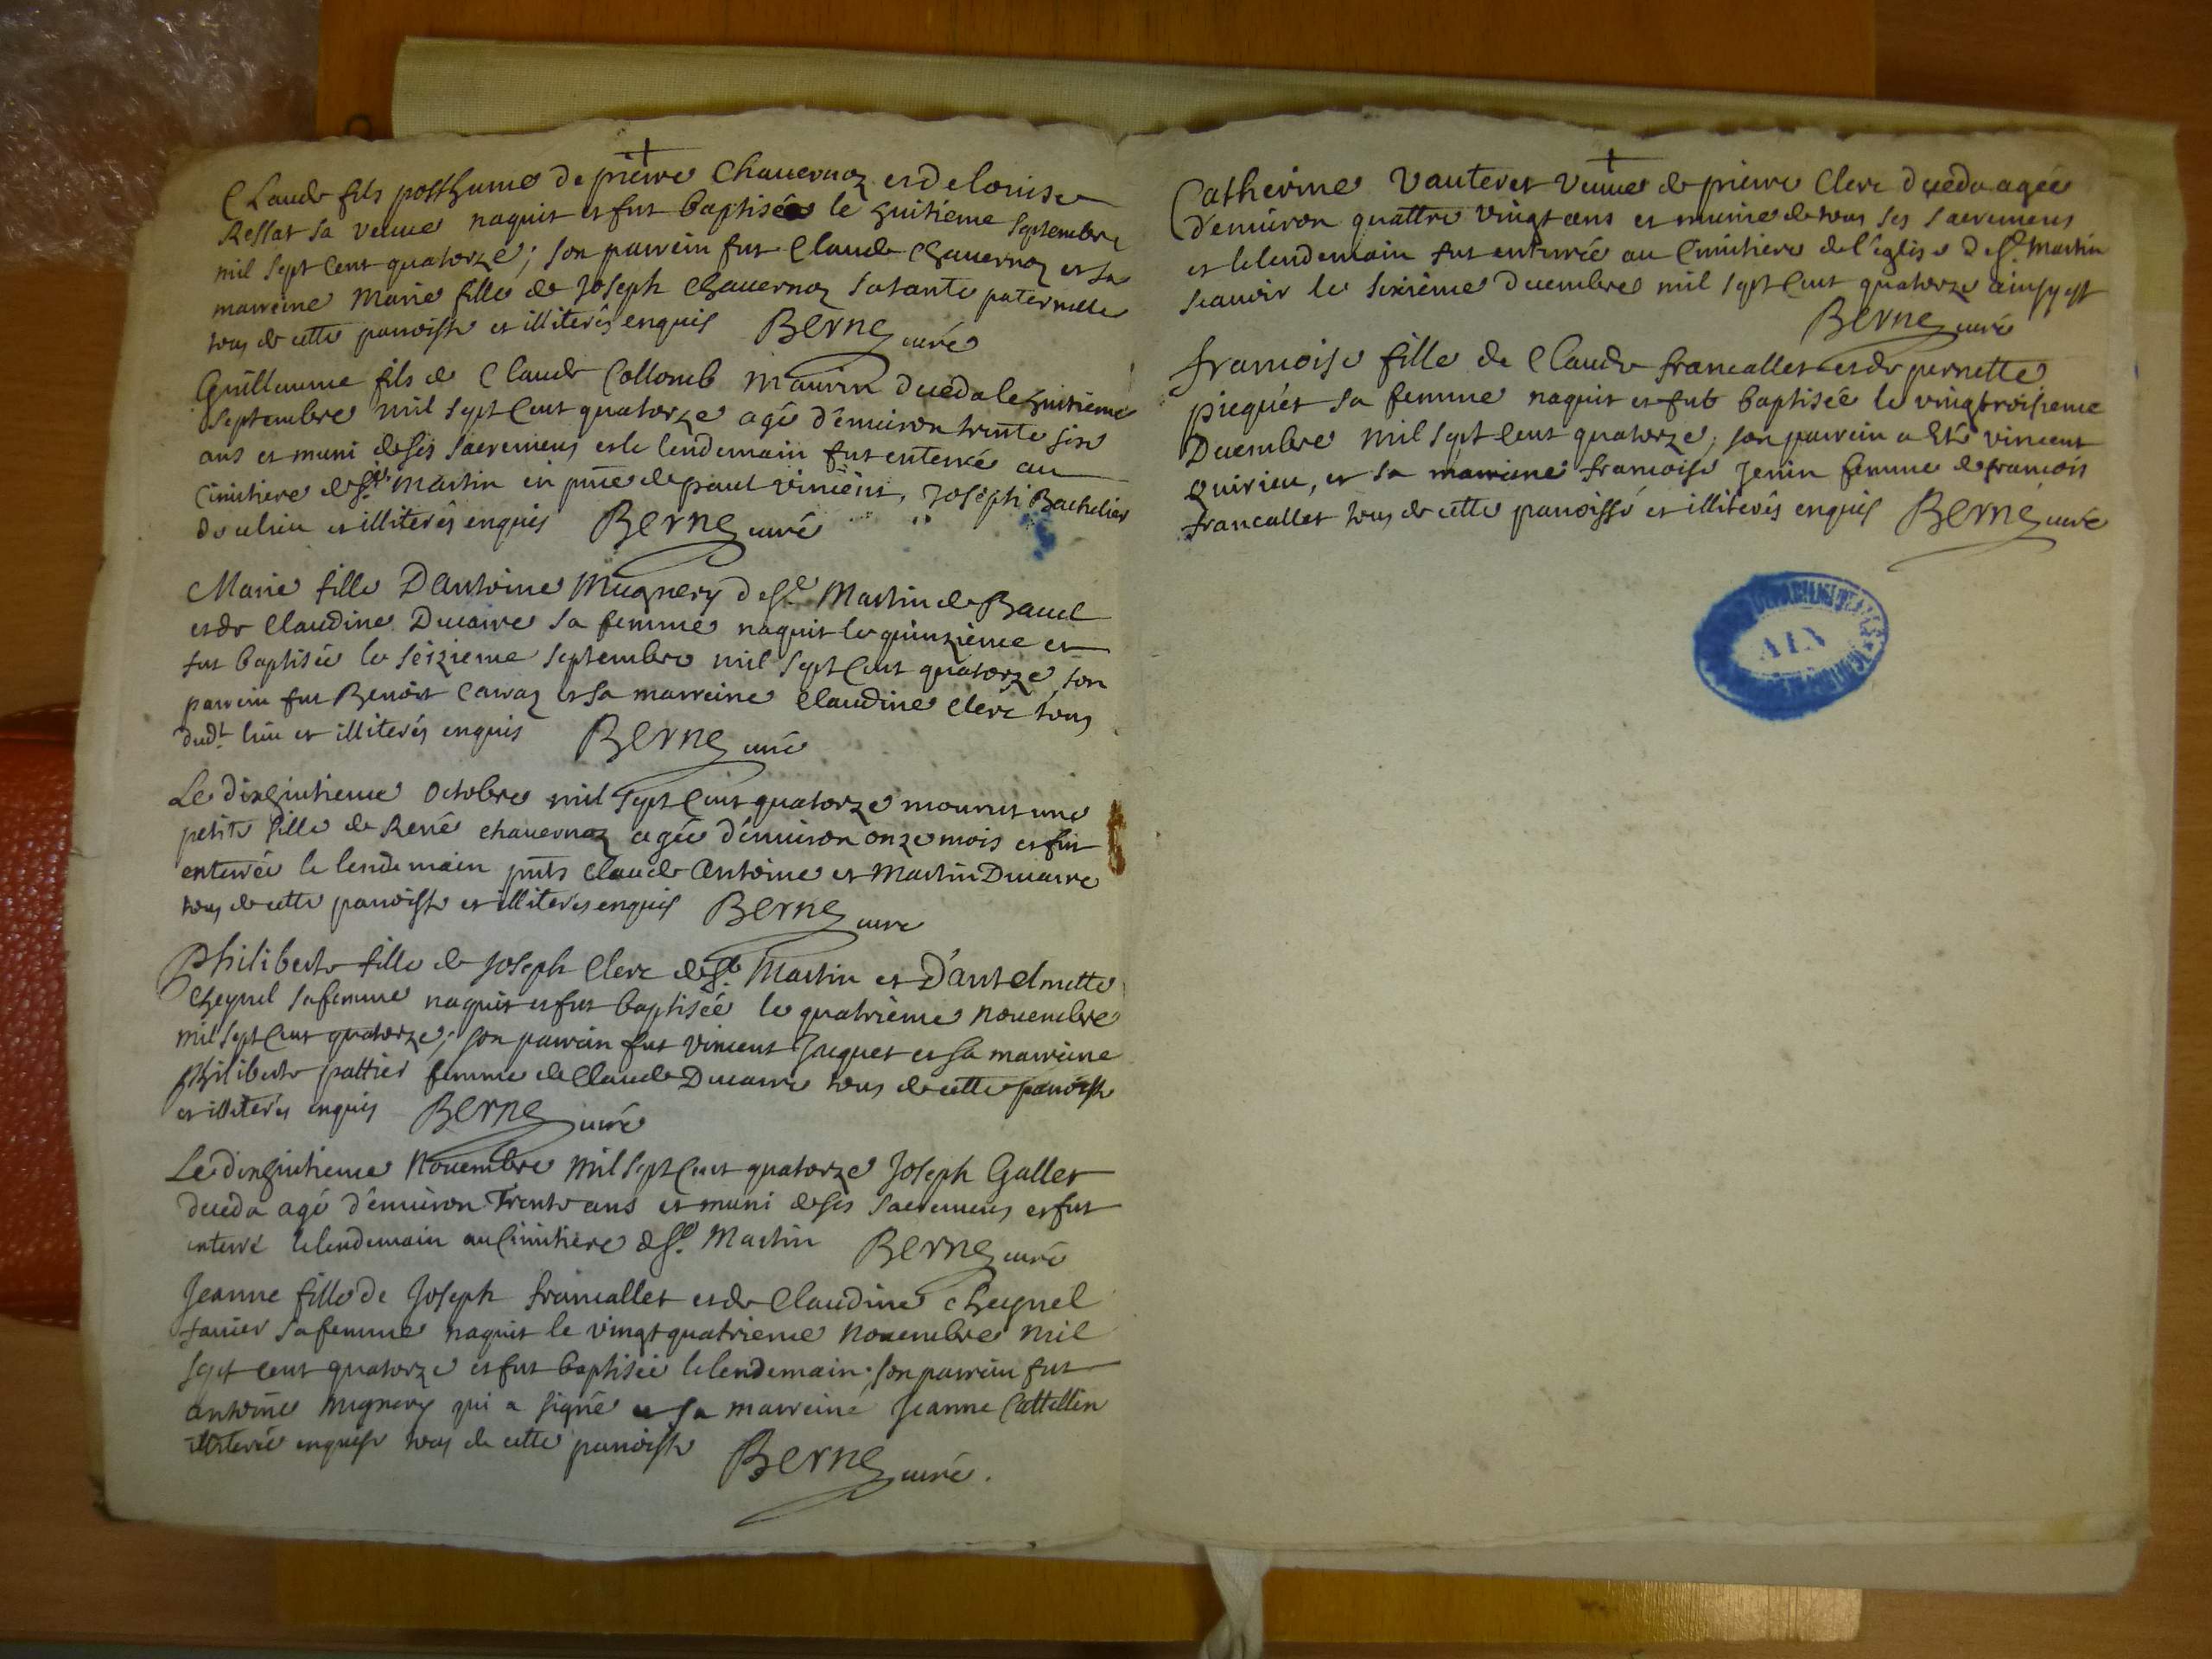 Claude fils posthume de pierre Chavernoz et de louise
Ressat sa veuve naquit et fut baptisé le huitieme septembre
mil sept cent quatorze; son parrein fut Claude Chavernoz et sa
marreine Marie fille de Joseph Chavernoz sa tante paternelle
tous de cette parroisse et illiterés enquis Berne curé
Guillaume fils de Claude Collomb mourin deceda le huitieme
septembre mil sept cent quatorze agé d'environ trente six
ans et muni de ses sacremens et le lendemain fut enterré au
Cimitiere de st. Martin en pnce de paul vincent, Joseph Bachelier
du lieu et illiterés enquis Berne curé
Marie fille D'antoine Mugnery de st. Martin de Bavel
et de Claudine Ducarre sa femme naquit le quinzieme et
fut baptisée le seizieme septembre mil sept cent quatorze son
parrein fut Benoit Carraz et sa marreine Claudine Clerc tous
dudt. lieu et illiterés enquis Berne curé
Le dixhuitieme octobre mil sept cent quatorze mourut une
petite fille de René chavernoz agée d'environ onze mois et fut
enterrée le lendemain pnts Claude Antoine et Martin Ducarre
tous de cette parroisse et illiterés enquis Berne curé
Philiberte fille de Joseph Clerc de st. Martin et D'antelmette
Cheynel sa femme naquit et fut baptisée le quatrième novembre
mil sept cent quatorze; son parrein fut vincent Juquet et sa marreine
philiberte pattier femme de Claude Ducarre tous de cette parroisse
et illiterés enquis Berne curé
Le dixhuitieme Novembre mil sept cent quatorze Joseph Gallet
deceda agé d'environ Trente ans et muni de ses sacremens et fut
enterré le lendemain au Cimitiere de st. Martin Berne curé
Jeanne fille de Joseph francallet et de Claudine Cheynel
sa femme naquit le vingt quatrieme novembre mil
sept cent quatorze et fut baptisée le lendemain. son parrein fut
antoine mugnery qui a signé et sa marreine Jeanne Cattellin
illiterée enquise tous de cette parroisse Berne curé.
Catherine Vauteret veuve de pierre Clerc deceda agée
d'environ quattre vingt ans et munie de tous ses sacremens
et le lendemain fut enterrée au Cimitiere de l'église de st. Martin
scavoir le sixième decembre mil sept cent quatorze ainsy est
Berne curé
francoise fille de Claude francallet et de pernette
picquet sa femme naquit et fut baptisée le vingtroisieme
Decembre mil sept cent quatorze; son parrein a été vincent
Quirieu, et sa marreine francoise Jenin femme de francois
francallet tous de cette parroisse et illiterés enquis Berne curé
AIN